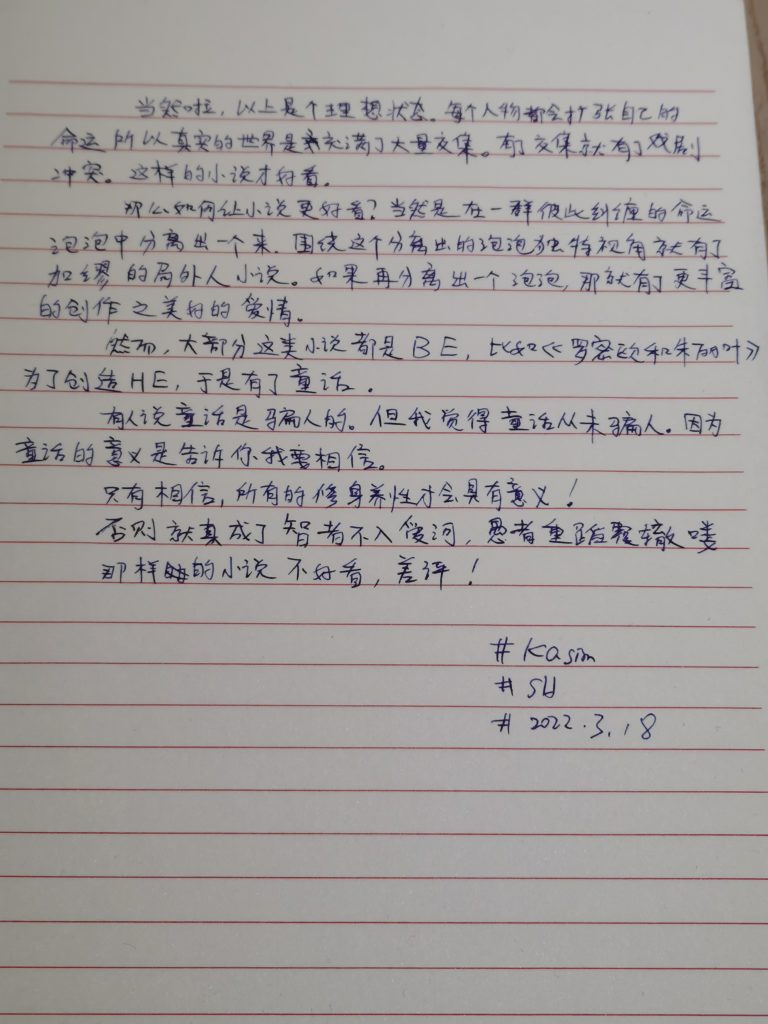 当然啦，以上是个理想状态。每个人物都会扩张自己的
命运所以真实的世界是充满了大量交集。有了交集就有了戏剧
冲突。这样的小说才好看。
那么如何让小说更好看？当然是在一群彼此纠缠的命运
泡泡中分离出一个来。围绕这个分离出的泡泡独特视角就有了
加缪的局外人小说。如果再分离出一个泡泡，那就有了更丰富
的创作之美好的爱情。
然而，大部分这类小说都是BE，比如《罗密欧和朱丽叶》
为了创造HE，于是有了童话。
有人说童话是骗人的。但我觉得童话从未骗人。因为
童话的意义是告诉你我要相信。
只有相信，所有的修身养性才会具有意义！
否则就真成了智者不入爱河，愚者重蹈覆辙喽
那样的小说不好看，差评！
# Kasim
# SH
# 2022.3.18